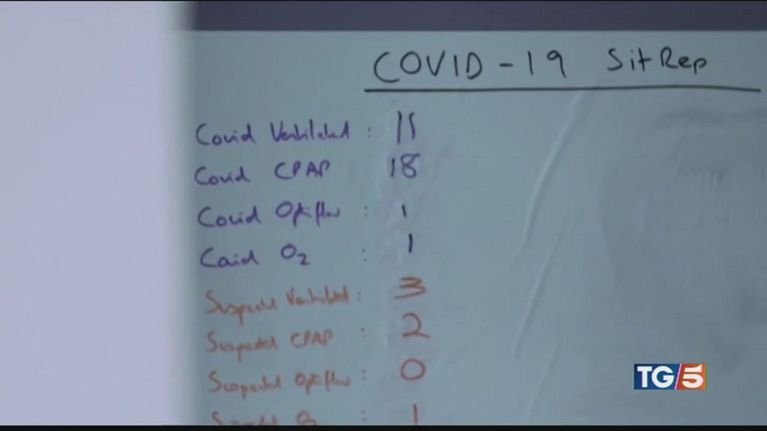 COVID-19 SitRep
Covid Ventilated : 15
Covid CPAP 18
Covid Optiflow : 1
Covid O2 : 1
Suspected Ventilated : 3
Suspected CPAP : 2
Suspected Optiflow : 0
Suspected O2 : 1
TG5